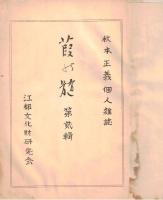 秋本正義個人雑誌
葭の髄
第貳輯
江都文化財研究会